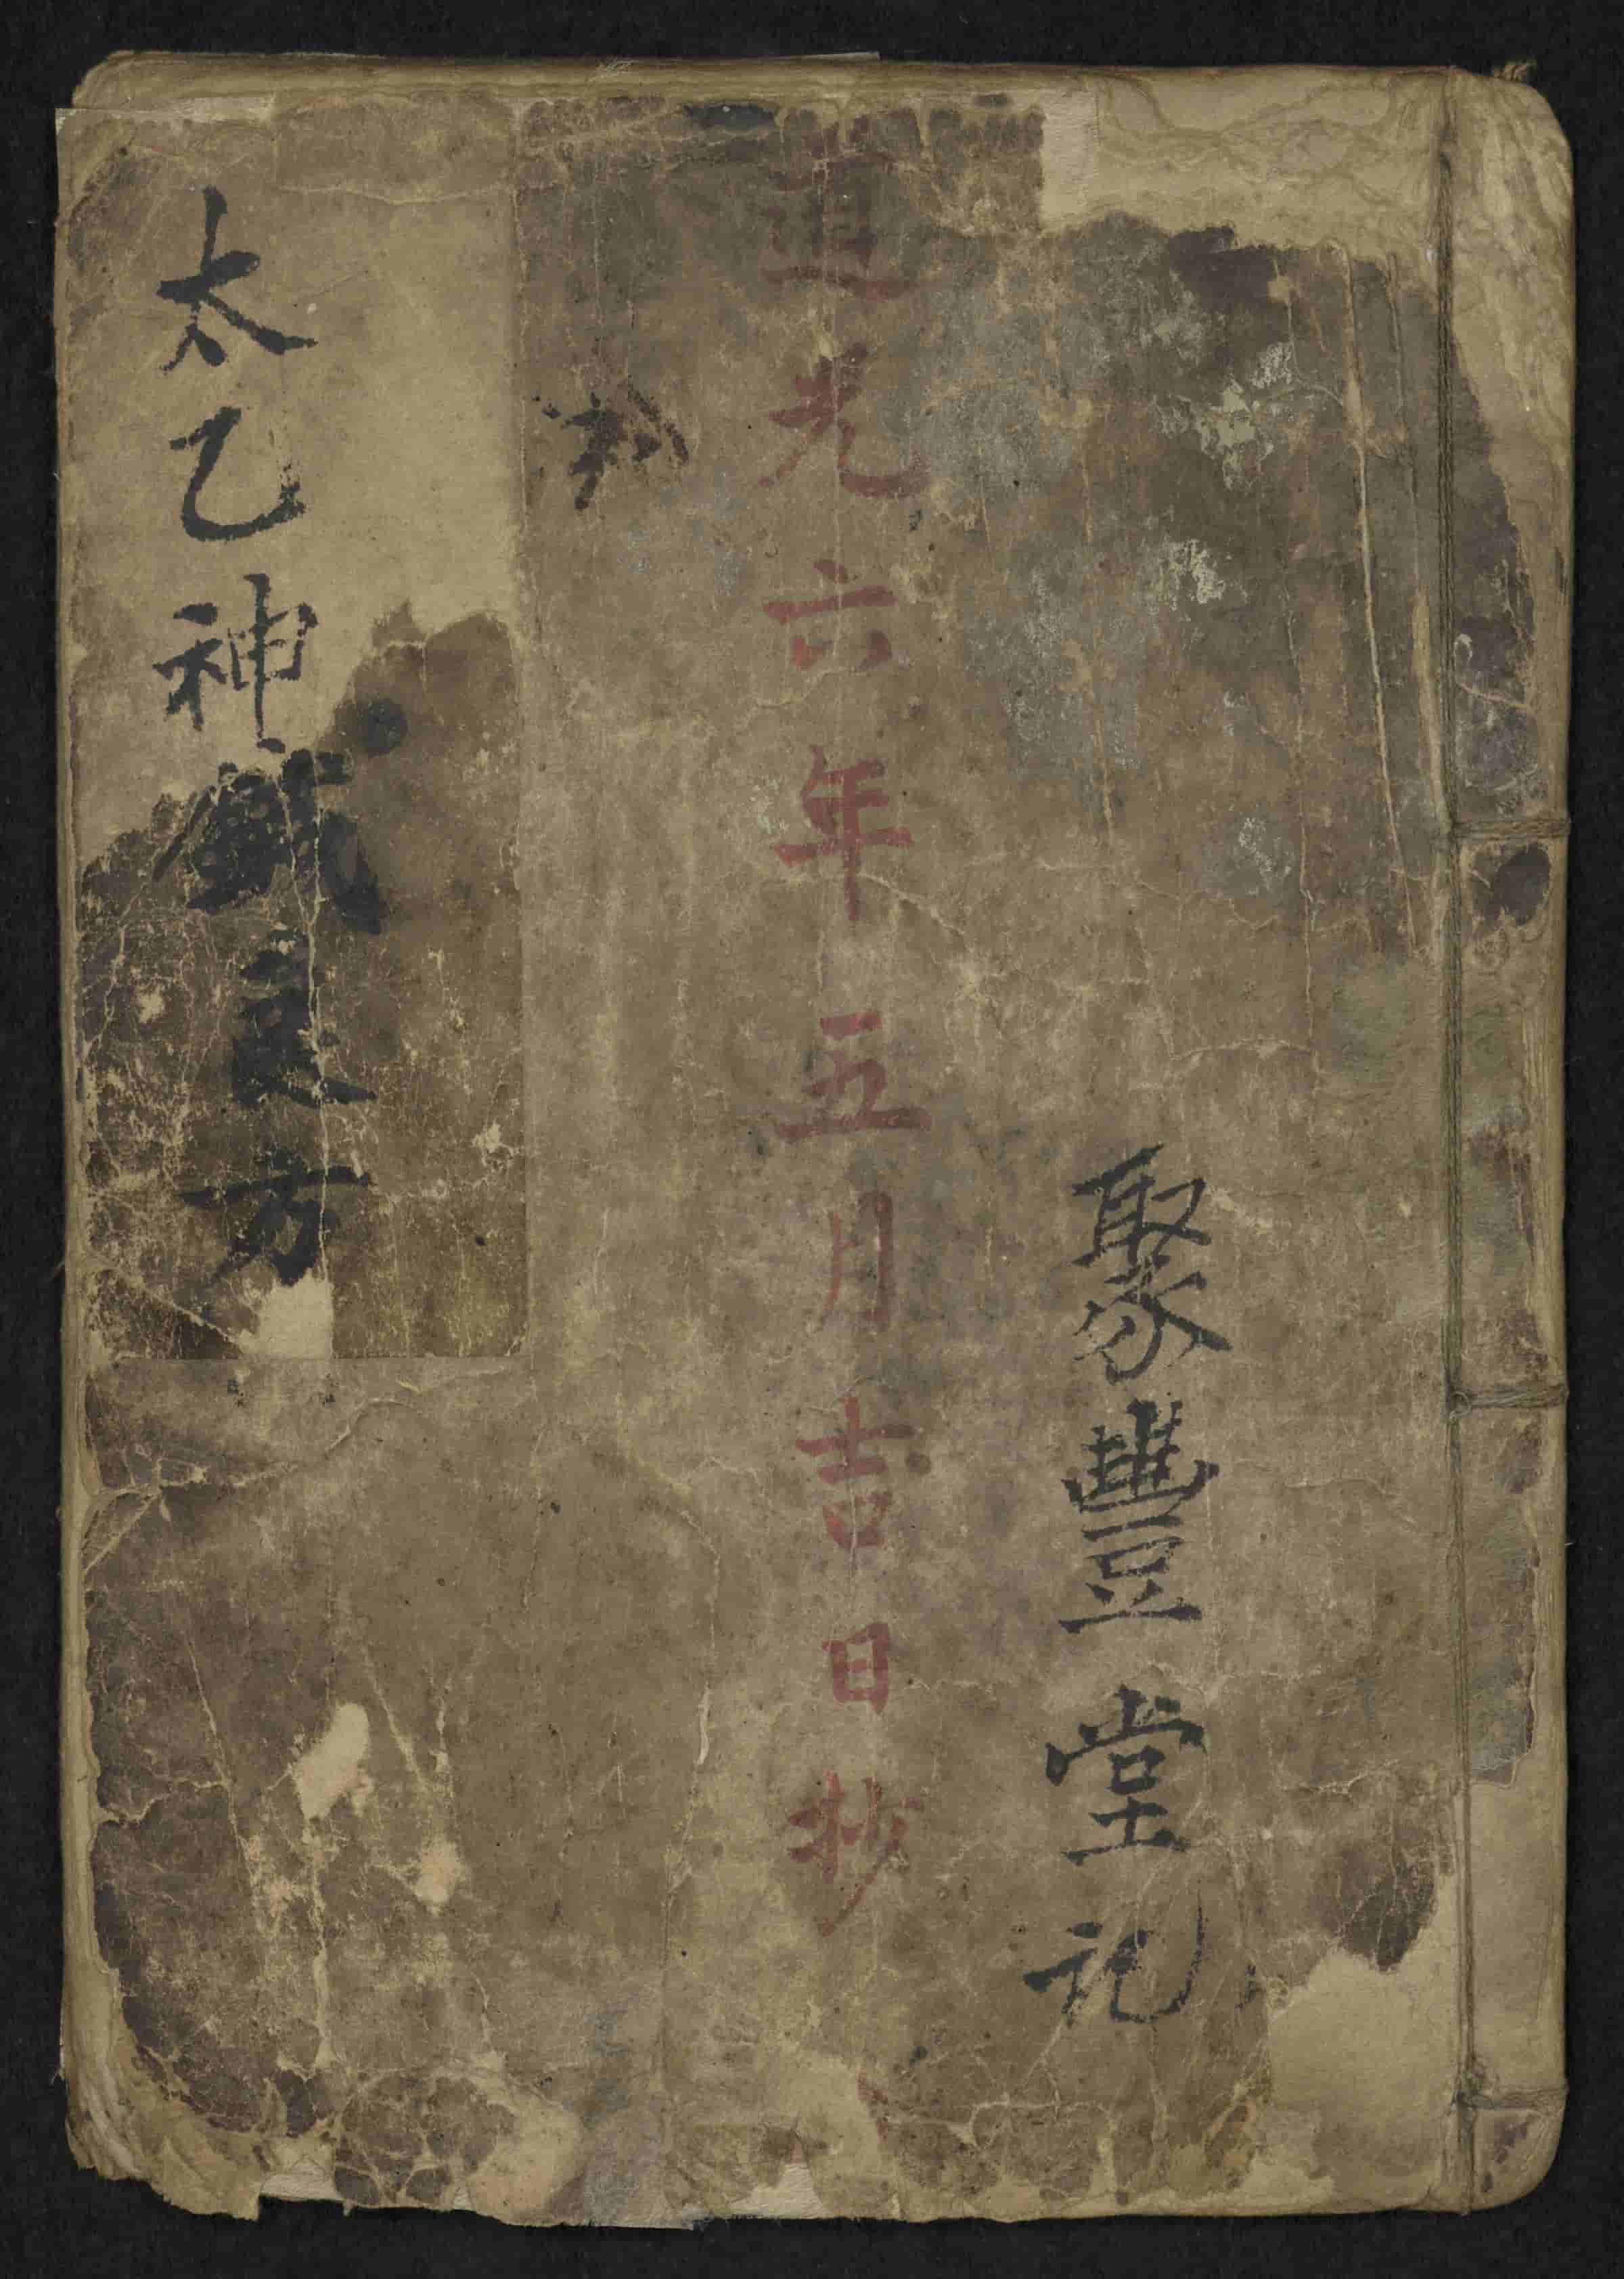 聚豐堂記
道光六年五月吉日抄
太乙神鍼良方